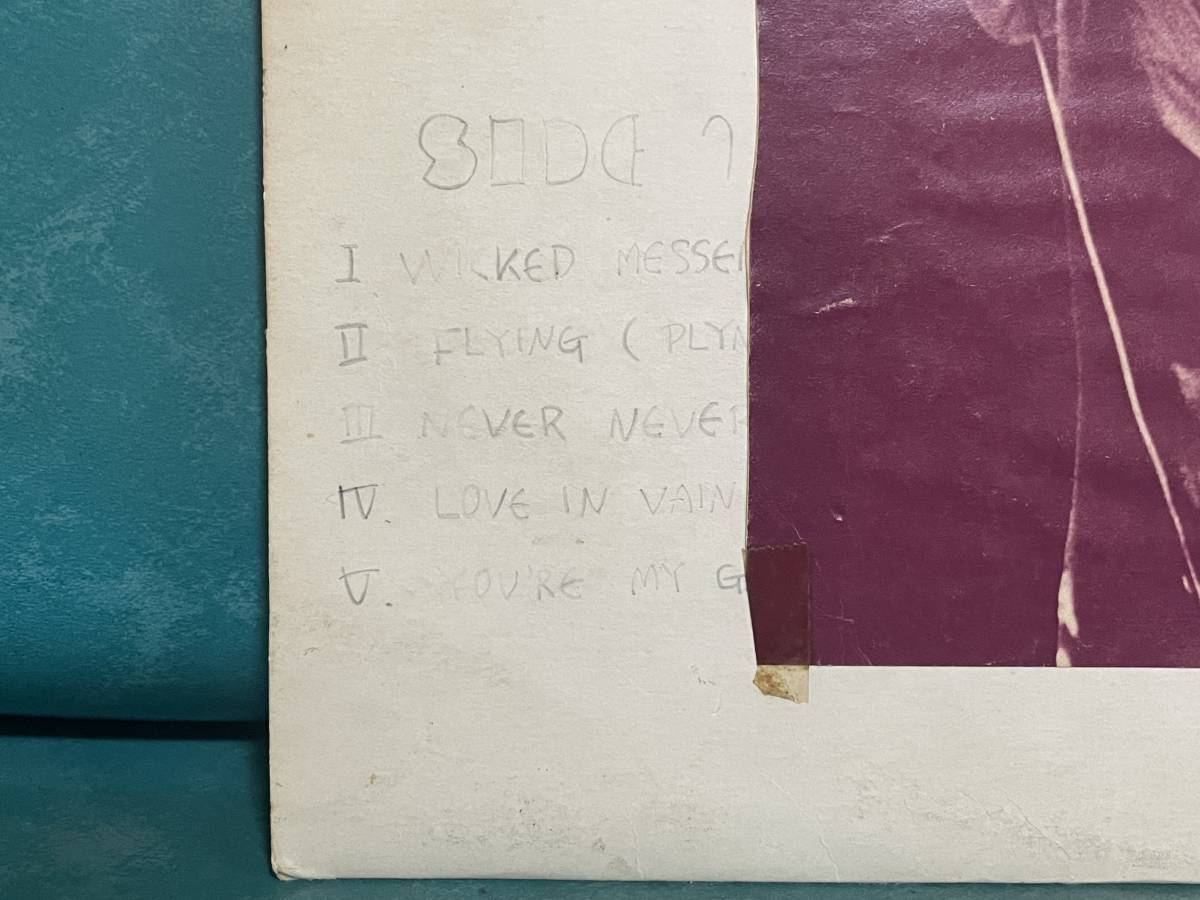 SIDE 1
I WICKED MESSEN
II FLYING ( PLYM
III NEVER NEVER
IV. LOVE IN VAIN
V. YOU'RE MY G